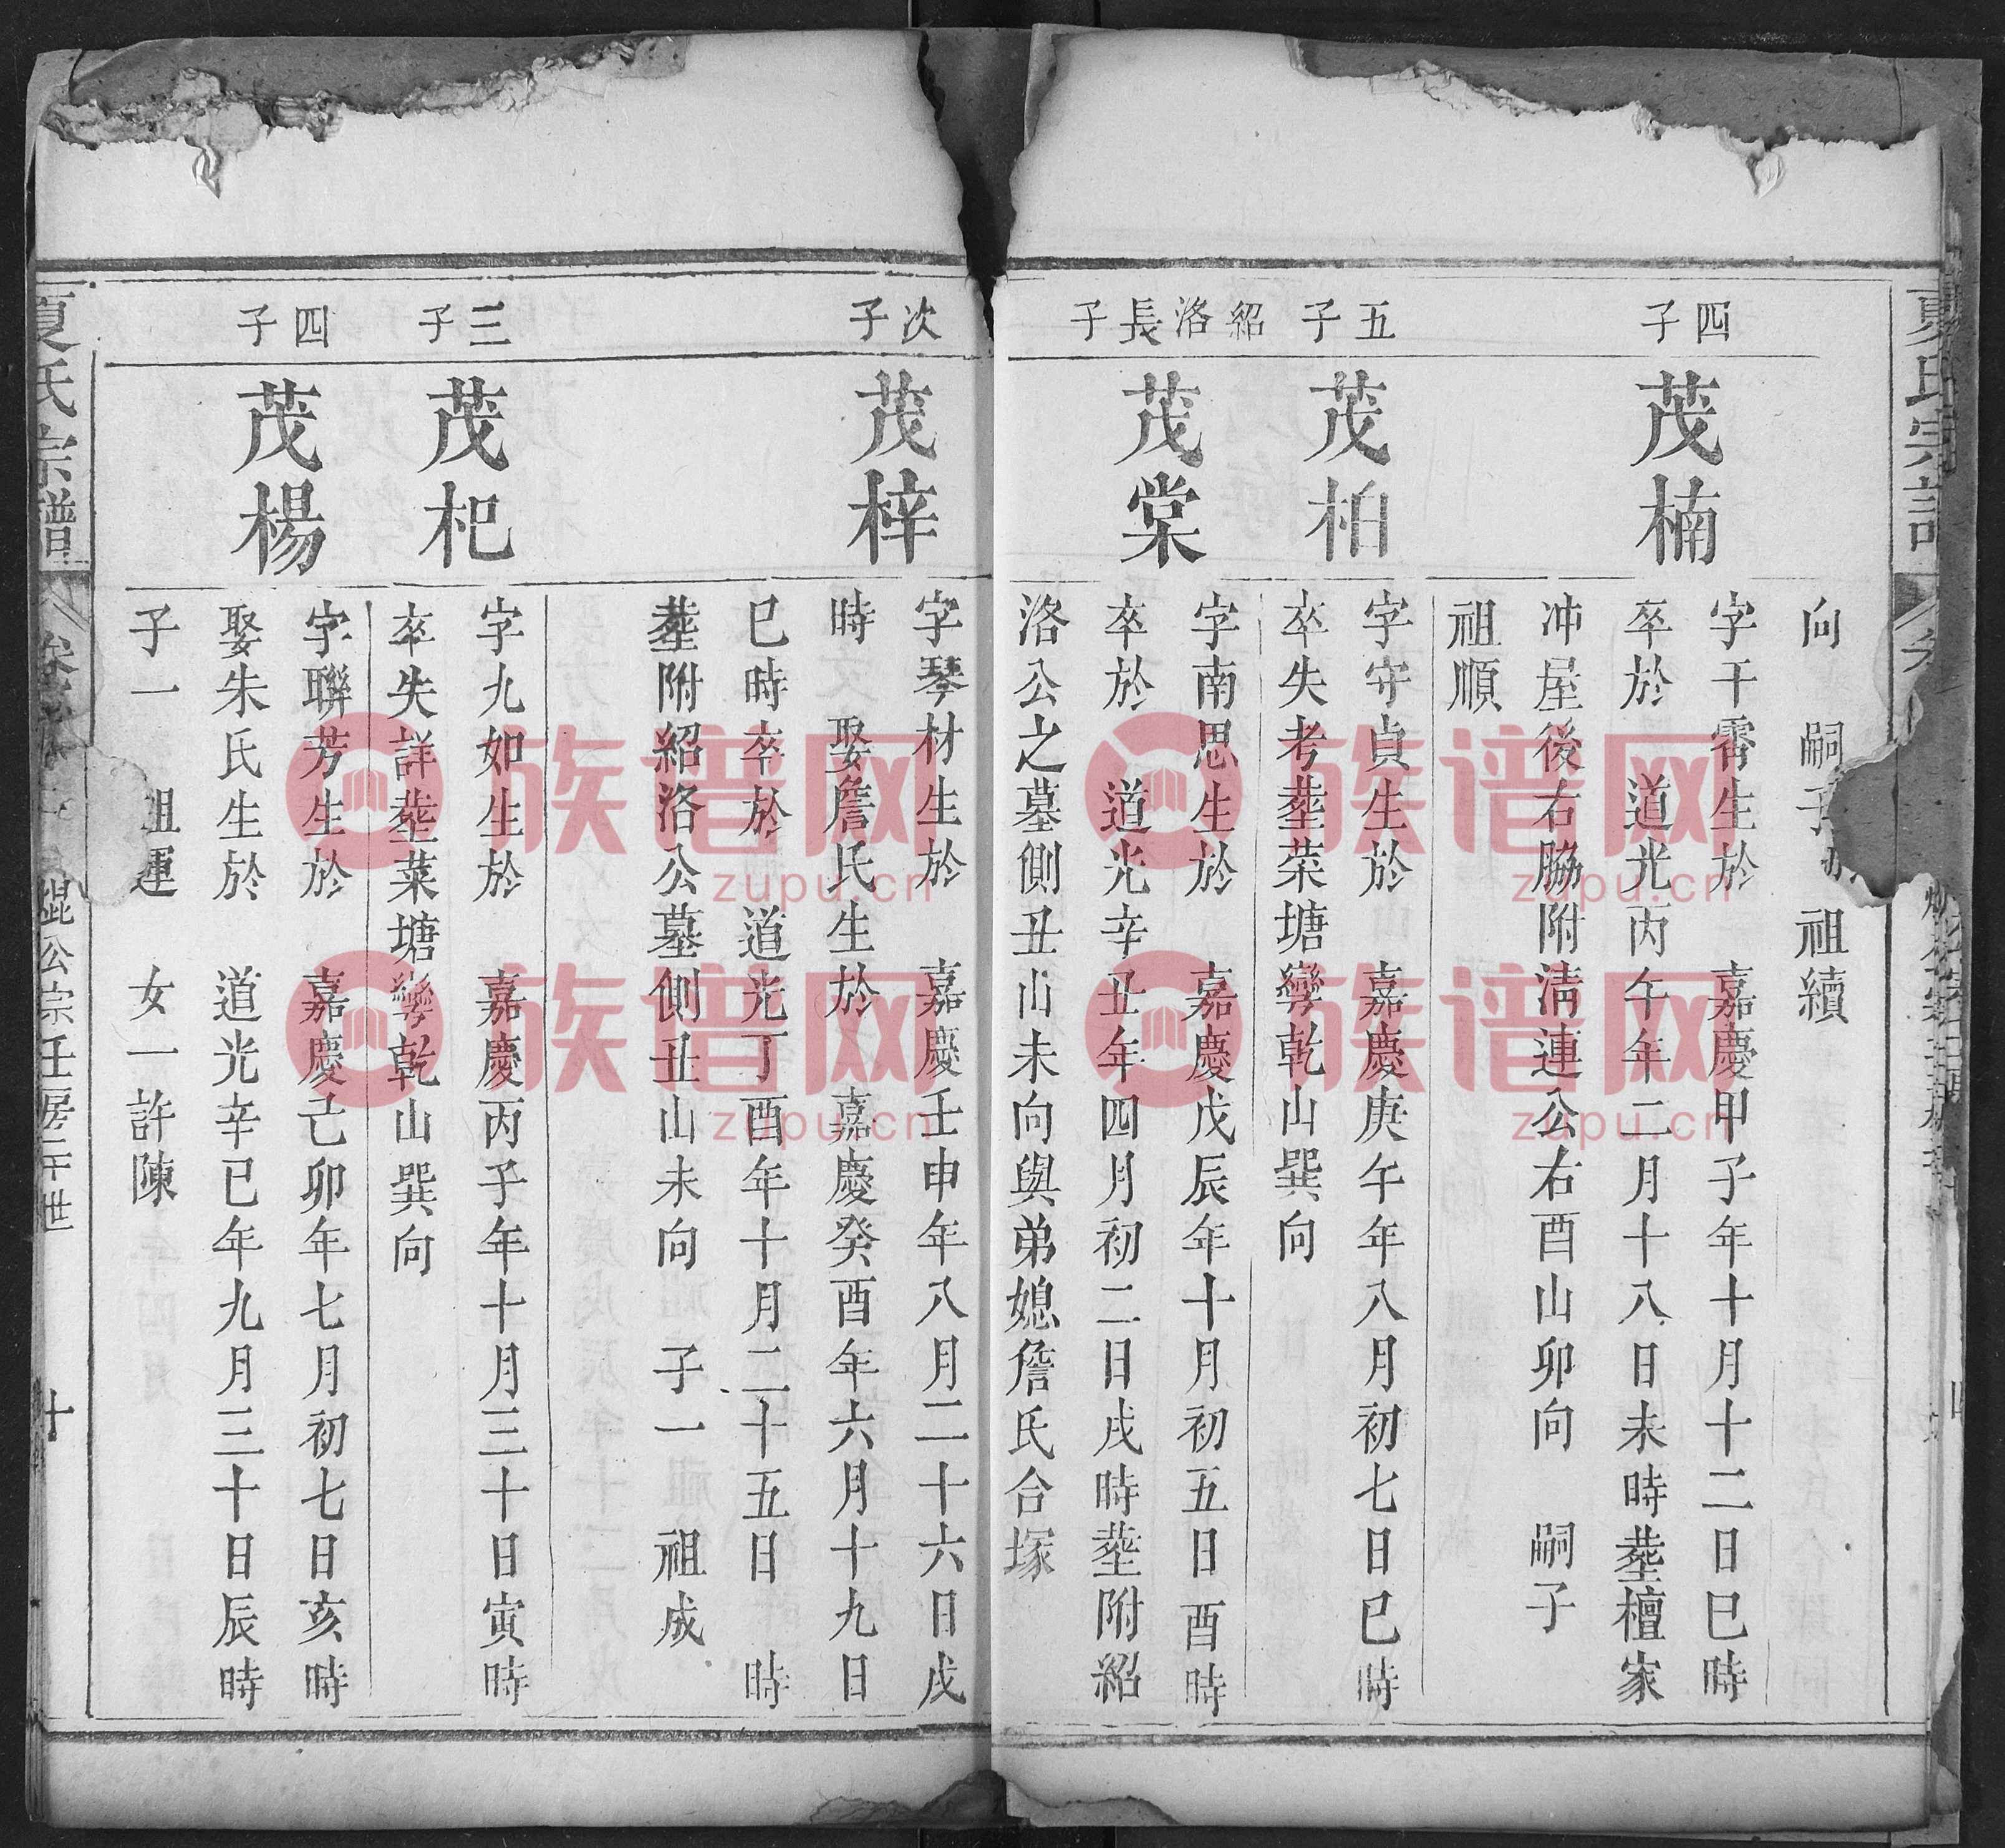 向　嗣子　祖續
四子
茂楠
字干霄生於　嘉慶甲子年十月十二日巳時
卒於　道光丙午年二月十八日未時塟檀家
冲屋後右脇附清連公右酉山卯向　嗣子
祖順
五子
茂柏
字守貞生於　嘉慶庚午年八月初七日巳時
卒失考塟菜塘㘘乾山巽向
紹洛長子
茂棠
字南思生於　嘉慶戊辰年十月初五日酉時
卒於　道光辛丑年四月初二日戌時塟附紹
洛公之墓側丑山未向與弟媳詹氏合塚
次子
茂梓
字琴材生於　嘉慶壬申年八月二十六日戌
時　娶詹氏生於　嘉慶癸酉年六月十九日
巳時卒於　道光丁酉年十月二十五日　時
塟附紹洛公墓側丑山未向　子一　祖成
三子
茂杞
字九如生於　嘉慶丙子年十月三十日寅時
卒失詳塟菜塘㘘乾山巽向
四子
茂楊
字聯芳生於　嘉慶己卯年七月初七日亥時
娶朱氏生於　道光辛巳年九月三十日辰時
子一　祖運　女一許陳
夏氏宗譜
卷
公宗任房二十世
十
族谱网
zupu.cn
族谱网
zupu.cn
族谱网
zupu.cn
族谱网
zupu.cn